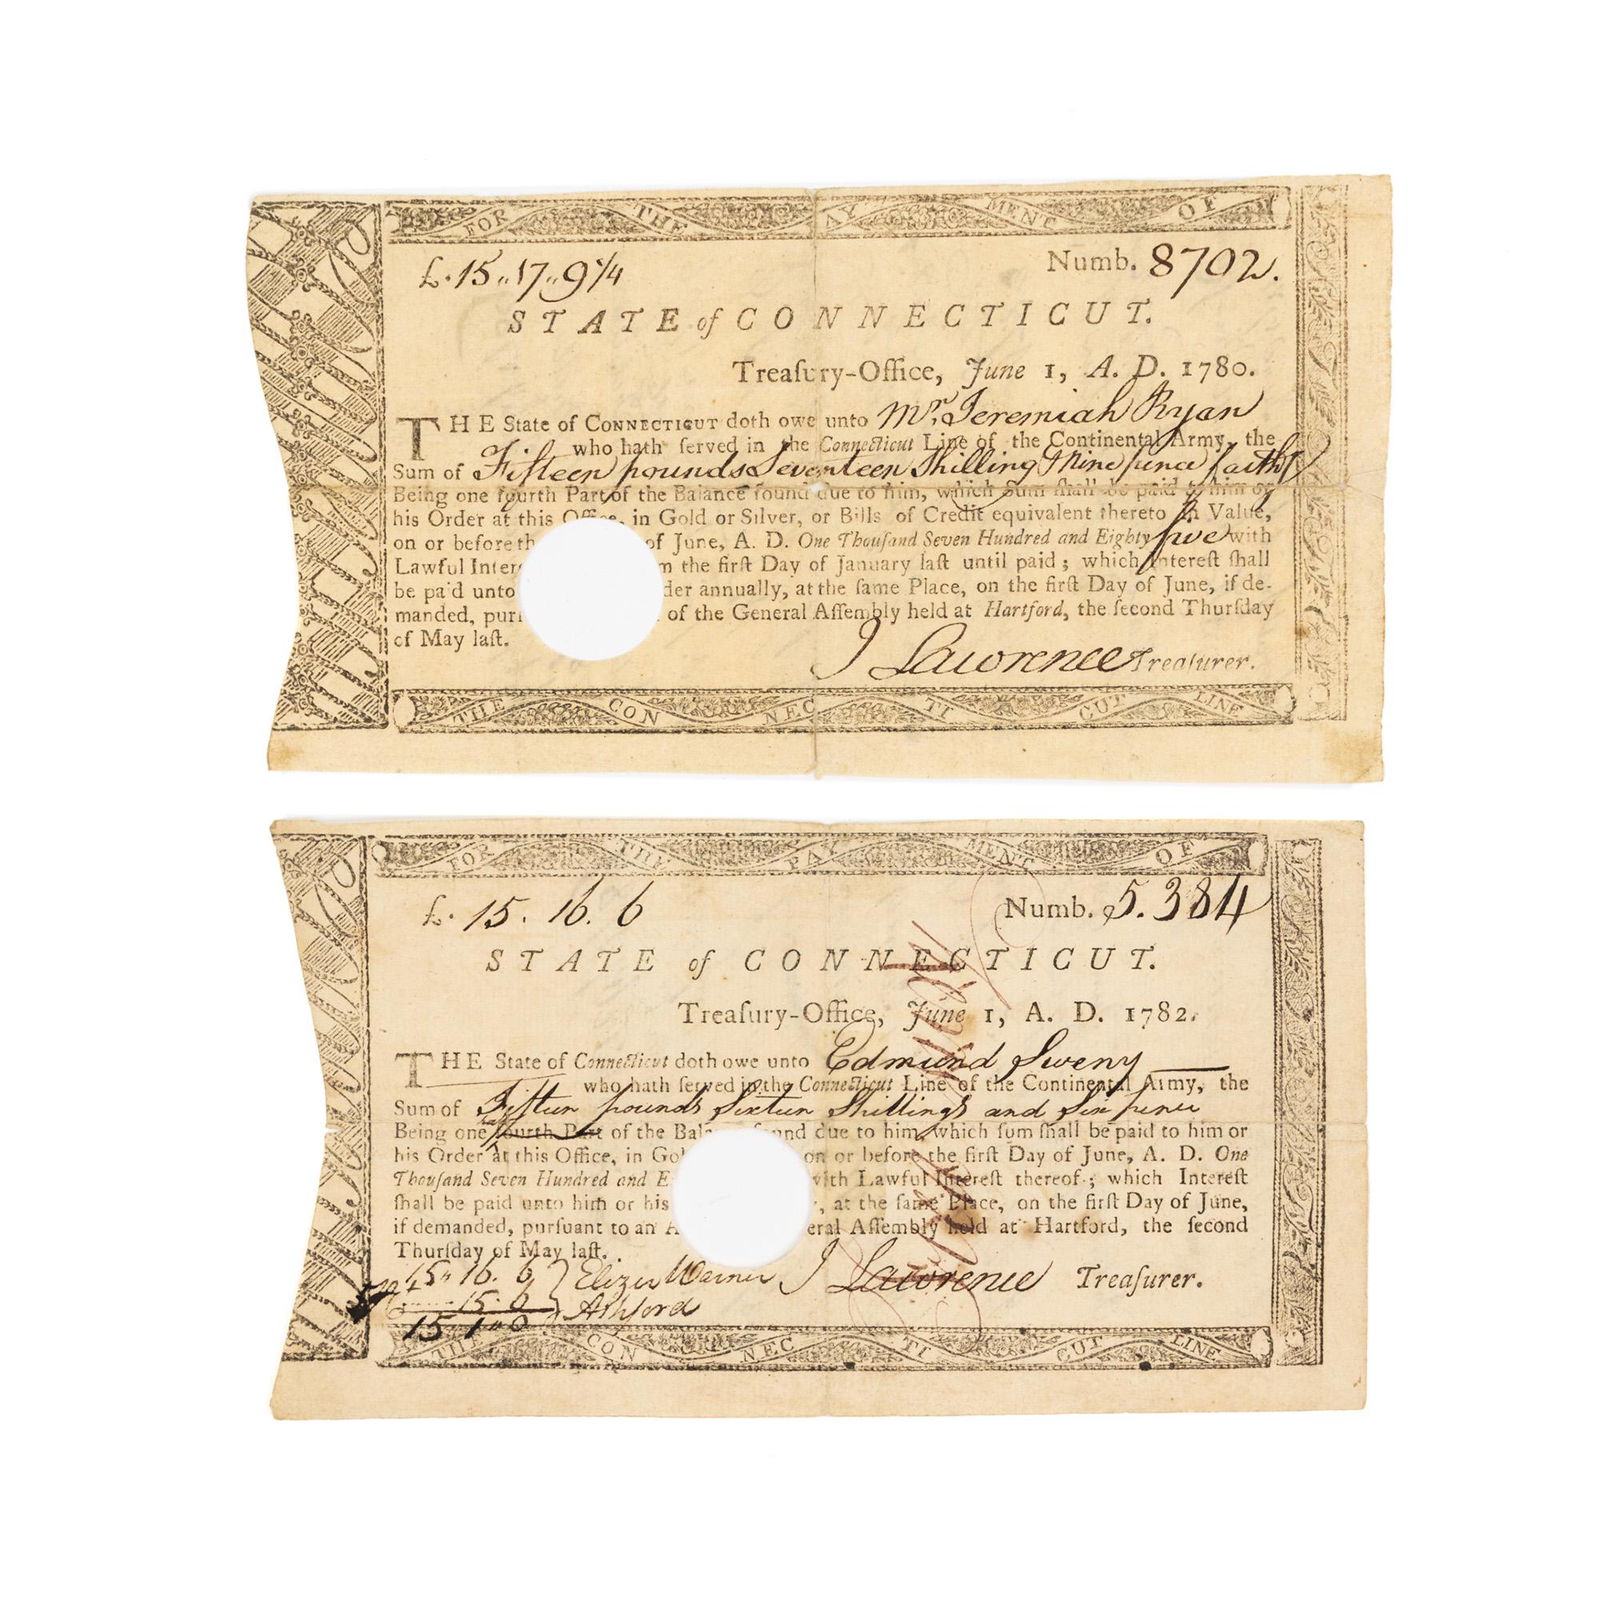 FOR THE PAY MENT OF
£.15..17..9 1/4 Numb. 8702.
STATE of CONNECTICUT.
Treaſury-Office, June 1, A. D. 1780.
THE State of CONNECTICUT doth owe unto Mr. Jeremiah Ryan
who hath ſerved in the Connecticut Line of the Continental Army, the
Sum of Fifteen pounds Seventeen Shilling & Nine pence
Being one fourth Part of the Balance found due to him, which Sum ſhall be paid to him or
his Order at this Office, in Gold or Silver, or Bills of Credit equivalent thereto in Value,
on or before of June, A. D. One Thouſand Seven Hundred and Eighty five with
Lawful the firſt Day of January laſt until paid; which Intereſt ſhall
be paid unto annually, at the ſame Place, on the firſt Day of June, if de-
manded, of the General Aſſembly held at Hartford, the ſecond Thurſday
of May laſt.
J Lawrence Treaſurer.
THE CON NEC TI CUT LINE
FOR THE PAY MENT OF
£. 15. 16. 6 Numb. 5.384
STATE of CONNECTICUT.
Treaſury-Office, June 1, A. D. 1782.
THE State of Connecticut doth owe unto Edmund Sweny
who hath ſerved in the Connecticut Line of the Continental Army, the
Sum of Fifteen pounds Sixteen Shillings and Six pence
Being one fourth Part of the found due to him, which ſum ſhall be paid to him or
his Order at this Office, in on or before the firſt Day of June, A. D. One
Thouſand Seven Hundred and with Lawful Intereſt thereof; which Intereſt
ſhall be paid unto him or his at the ſame Place, on the firſt Day of June,
if demanded, purſuant to an Aſſembly held at Hartford, the ſecond
Thurſday of May laſt.
15.. 16. 6 Elizer Warner J Lawrence Treaſurer.
15. 6 Aſhford
15 1..0
THE CON NEC TI CUT LINE